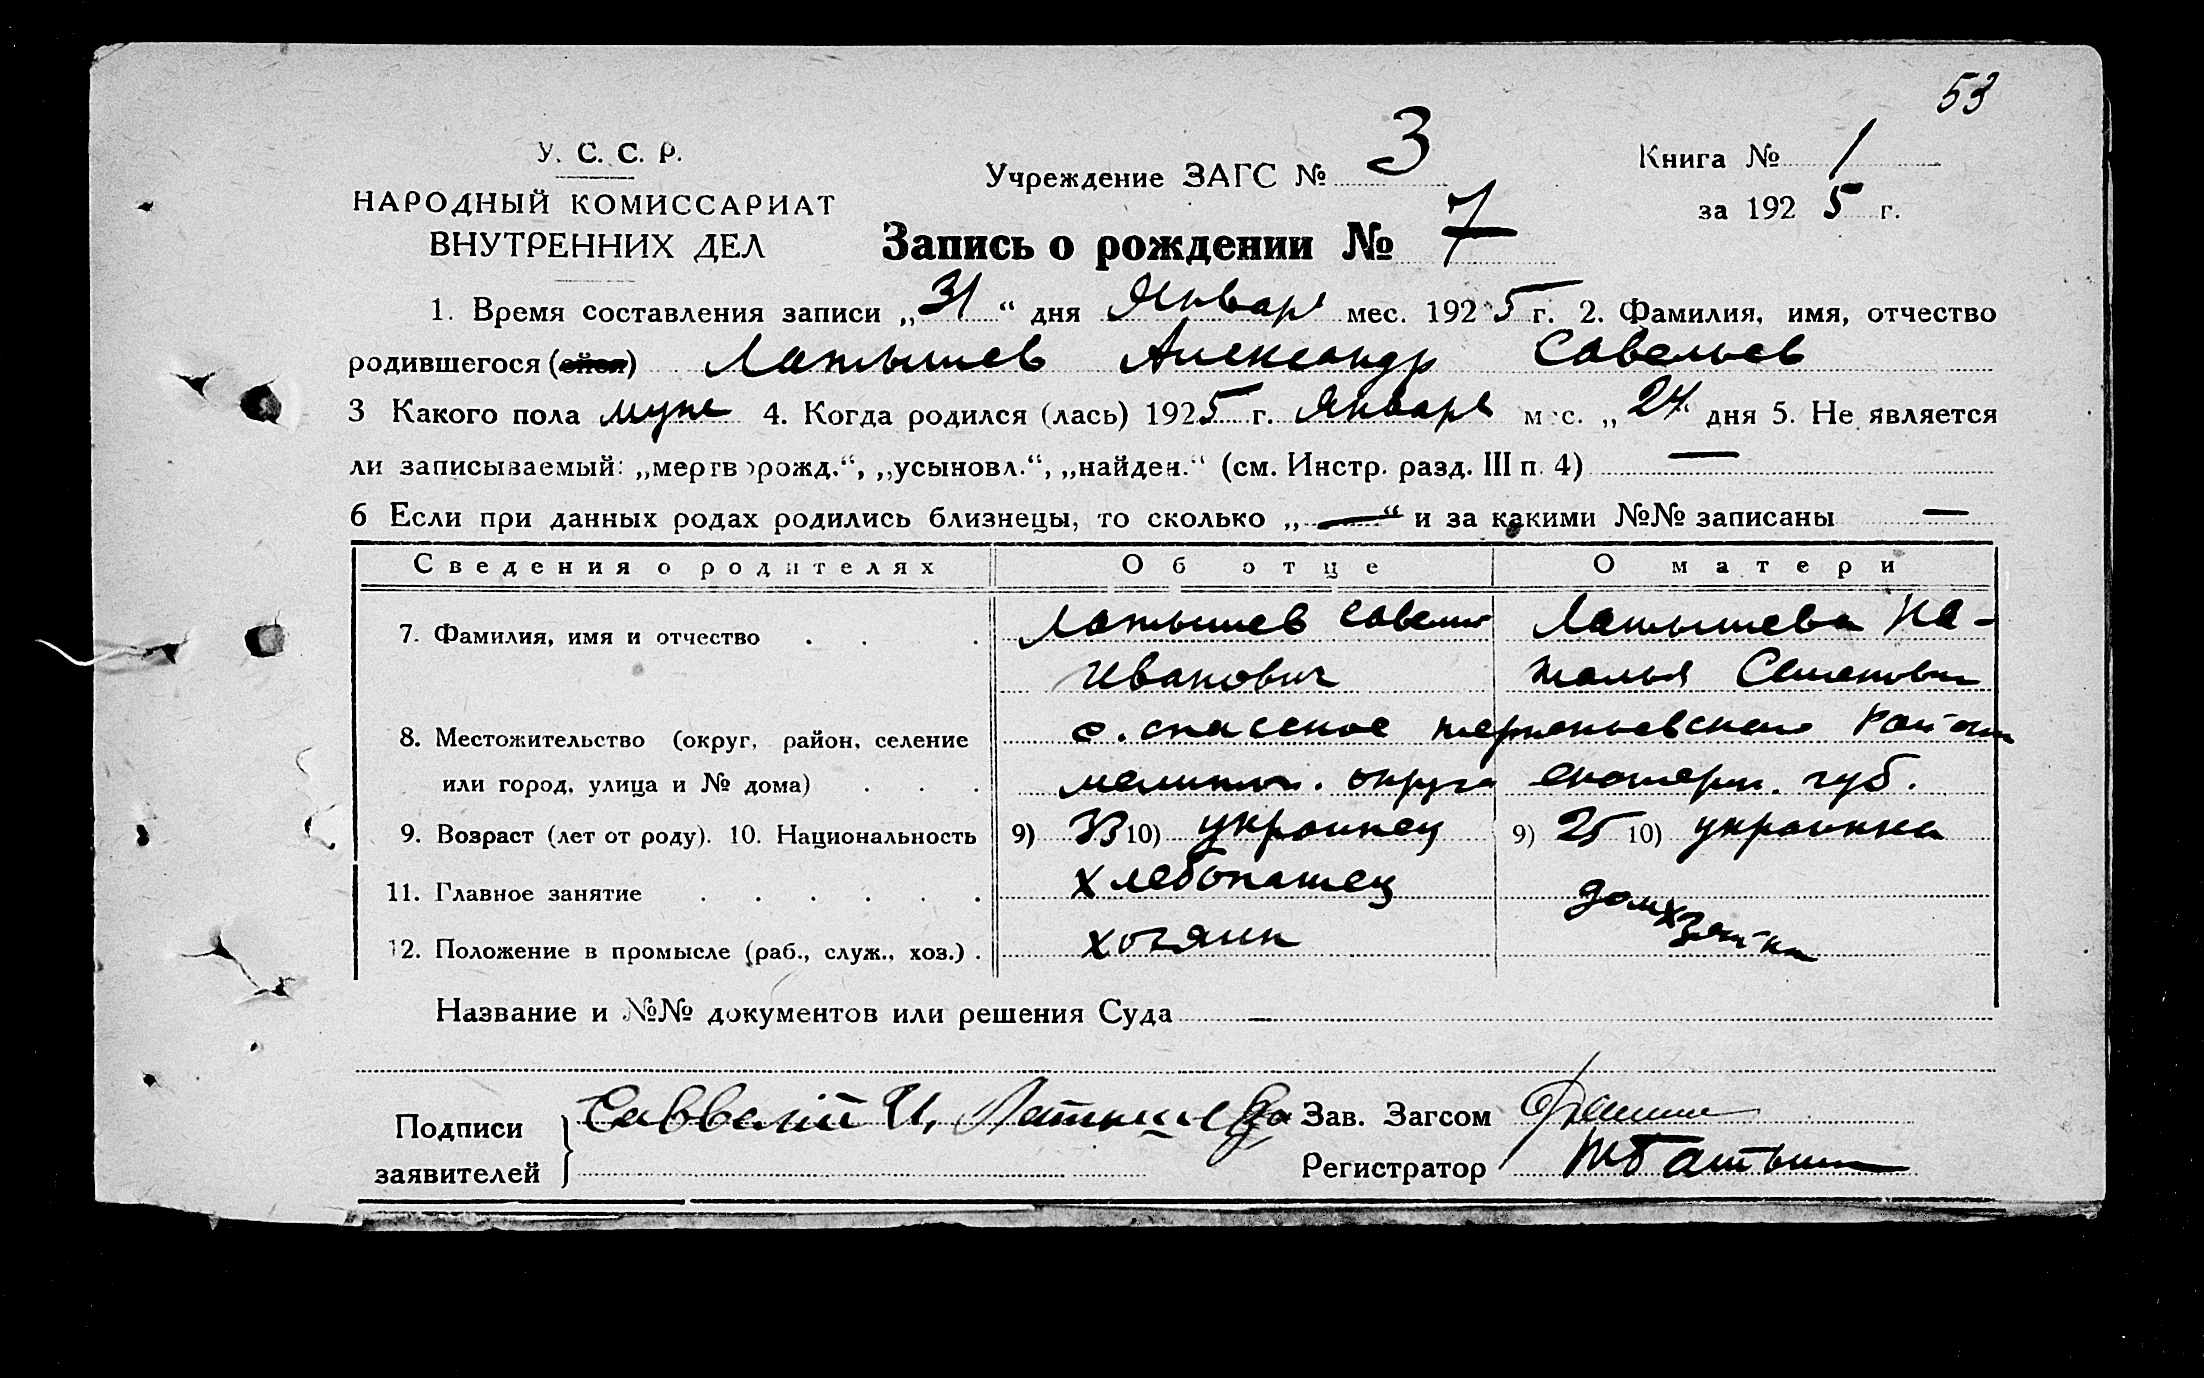 53
У. С. С. Р.
НАРОДНЫЙ КОМИССАРИАТ
ВНУТРЕННИХ ДЕЛ
Учреждение ЗАГС № 3
Книга № 1
за 1925 г.
Запись о рождении № 7
1. Время составления записи „31“ дня Января мес. 1925 г. 2. Фамилия, имя, отчество
родившегося (ейся) Латышев Александр Савельев
3 Какого пола муж 4. Когда родился (лась) 1925 г. Января мес. „24 дня 5. Не является
ли записываемый: „мертворожд.“, „усыновл.“, „найден.“ (см. Инстр. разд. III п. 4) —
6 Если при данных родах родились близнецы, то сколько „—“ и за какими №№ записаны —
Сведения о родителях Об отце О матери
7. Фамилия, имя и отчество . . . Латышев Савелий Латышева На-
Иванович талья Семеновн
8. Местожительство (округ, район, селение с. спасское района
или город, улица и № дома) . . . округа екатерин. губ.
9. Возраст (лет от роду). 10. Национальность 9) 33 10) украинец 9) 25 10) украинка
11. Главное занятие . . . . . . хлебопашец домхозяйка
12. Положение в промысле (раб., служ., хоз.) . хозяин
Название и №№ документов или решения Суда —
Подписи
заявителей
Савелий И. Латышев
Зав. Загсом
Регистратор